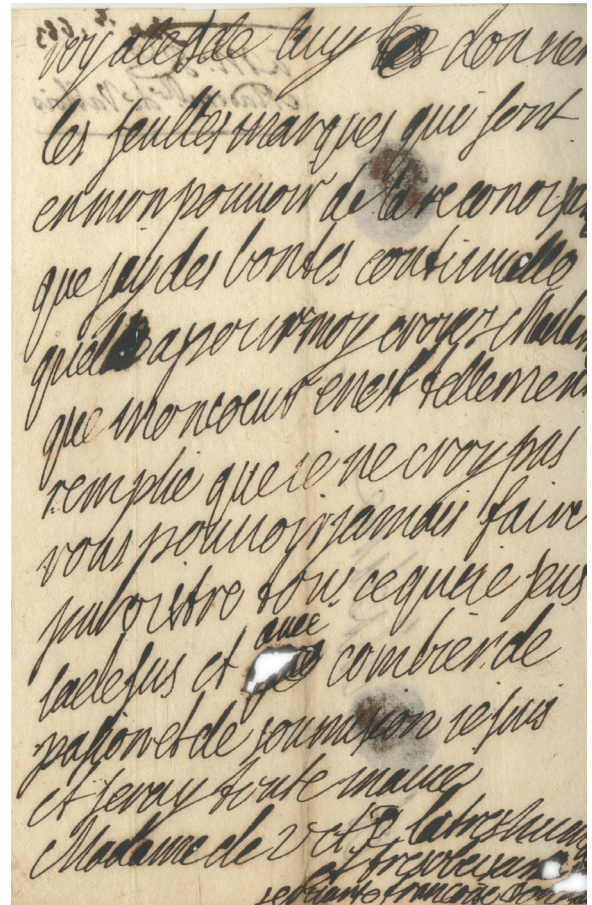 royalle de luy donner
les feulles marques qui sont
en mon pouuoir de la reconoissan
que jay des bontes continuelle
quelle a pour moy croyes Madam
que mon coeur en est tellement
remplie que ie ne croy pas
vous pouuoir jamais faire
paroistre tout ce que ie sens
ladesus et auec combien de
passion et de soumission ie suis
et seray toute ma vie
Madame de V la tres hum
et tres obeisante
seruante francoise